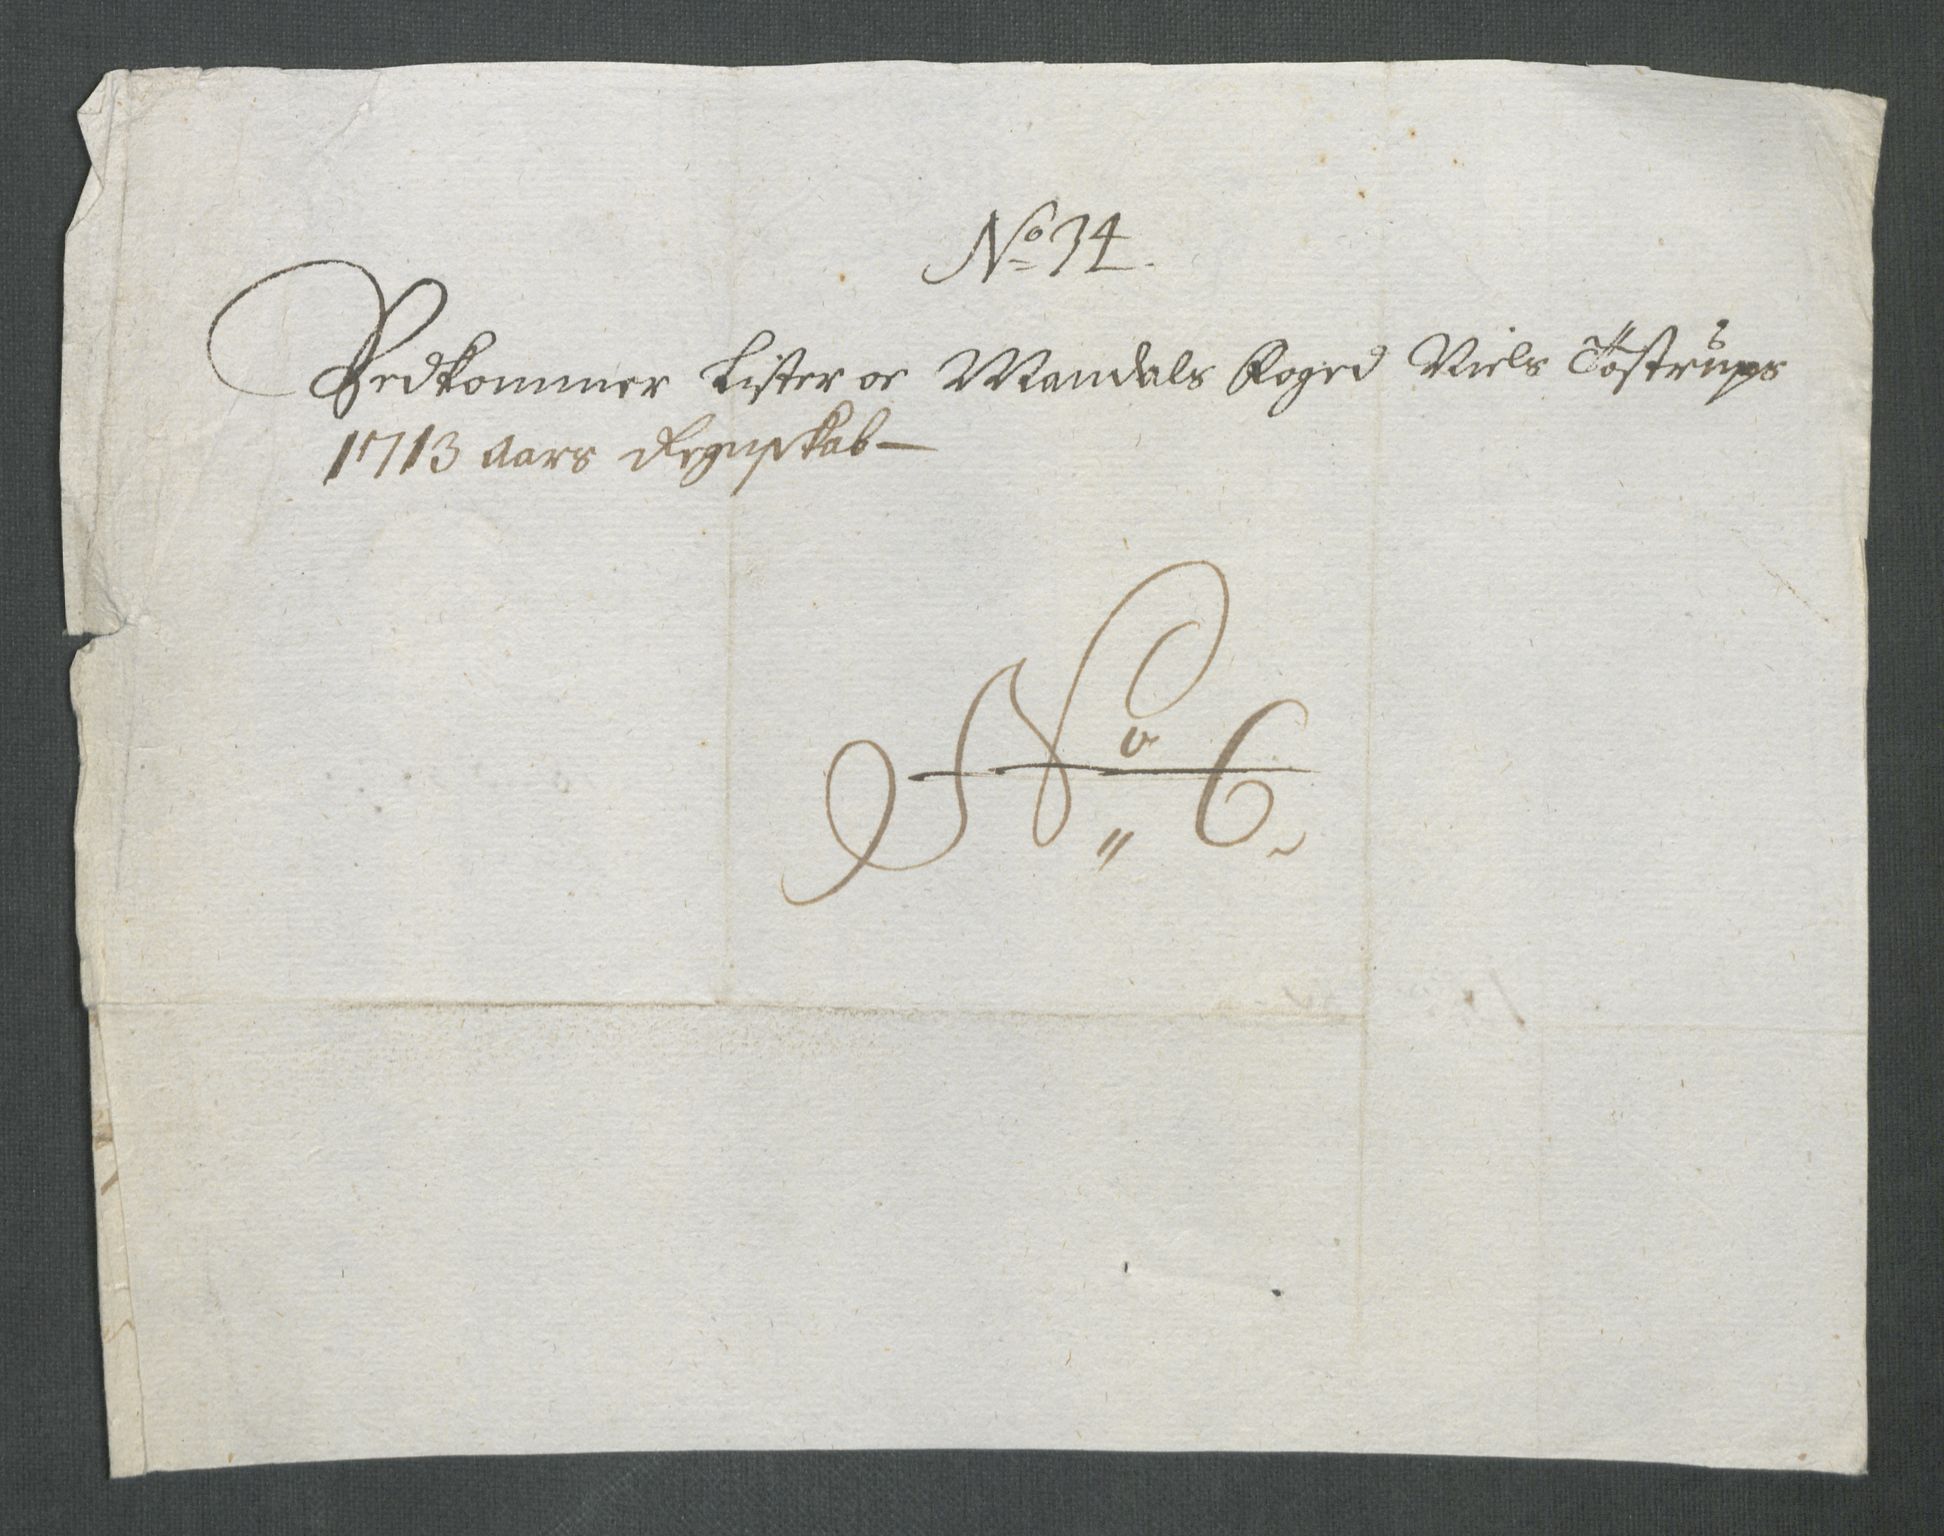 No 34.
Vedkommer Lister oc Mandals Foged Niels Töstrups
1713 Aars Regnskab—
No 6